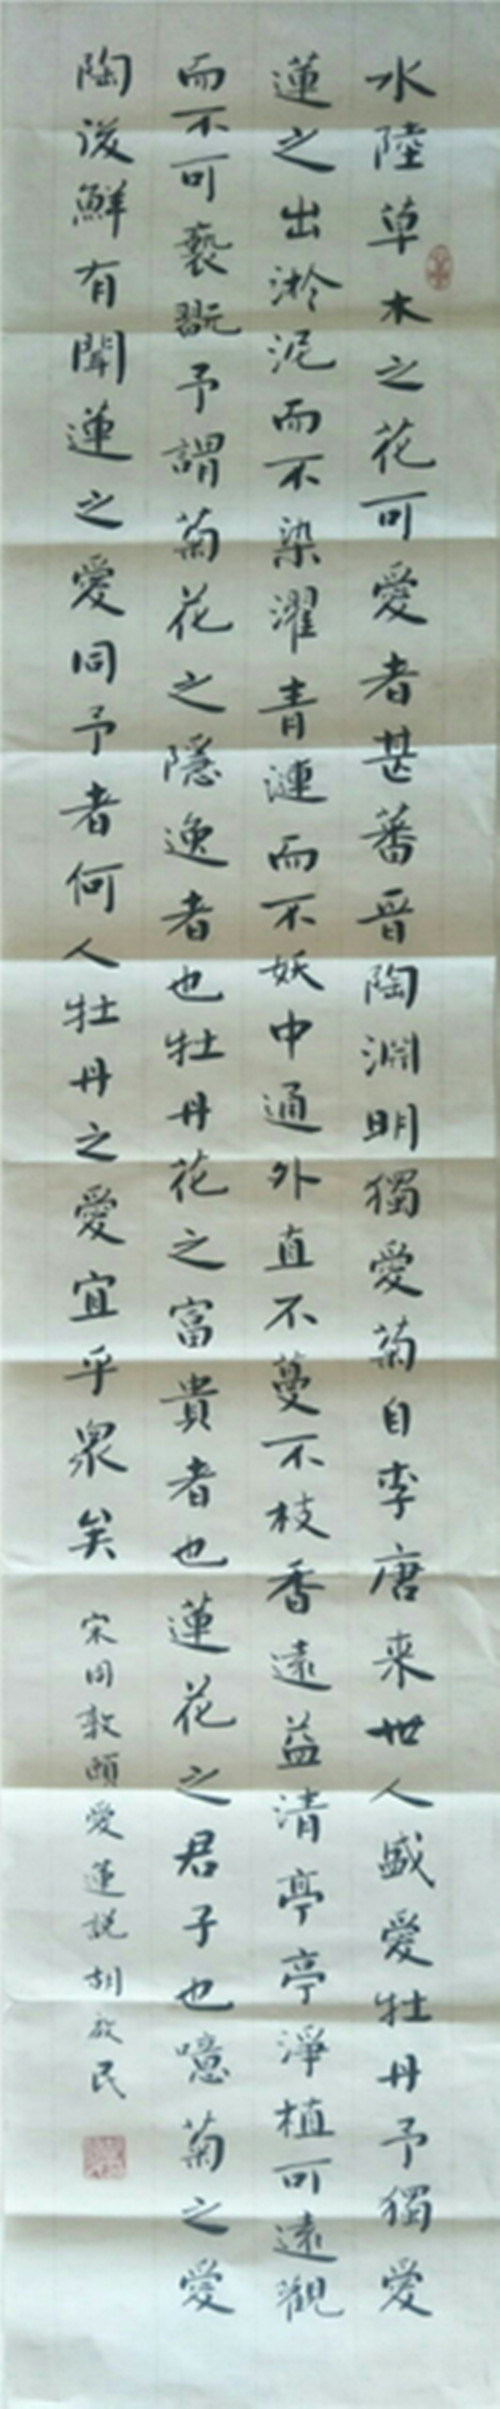 水陸草木之花可愛者甚蕃晉陶淵明獨愛菊自李唐来世人盛愛牡丹予獨愛
蓮之出淤泥而不染濯青漣而不妖中通外直不蔓不枝香遠益清亭亭淨植可遠觀
而不可褻翫予謂菊花之隱逸者也牡丹花之富貴者也蓮花之君子也噫菊之愛
陶後鮮有聞蓮之愛同予者何人牡丹之愛宜乎眾矣 宋周敦頤愛蓮説 胡民